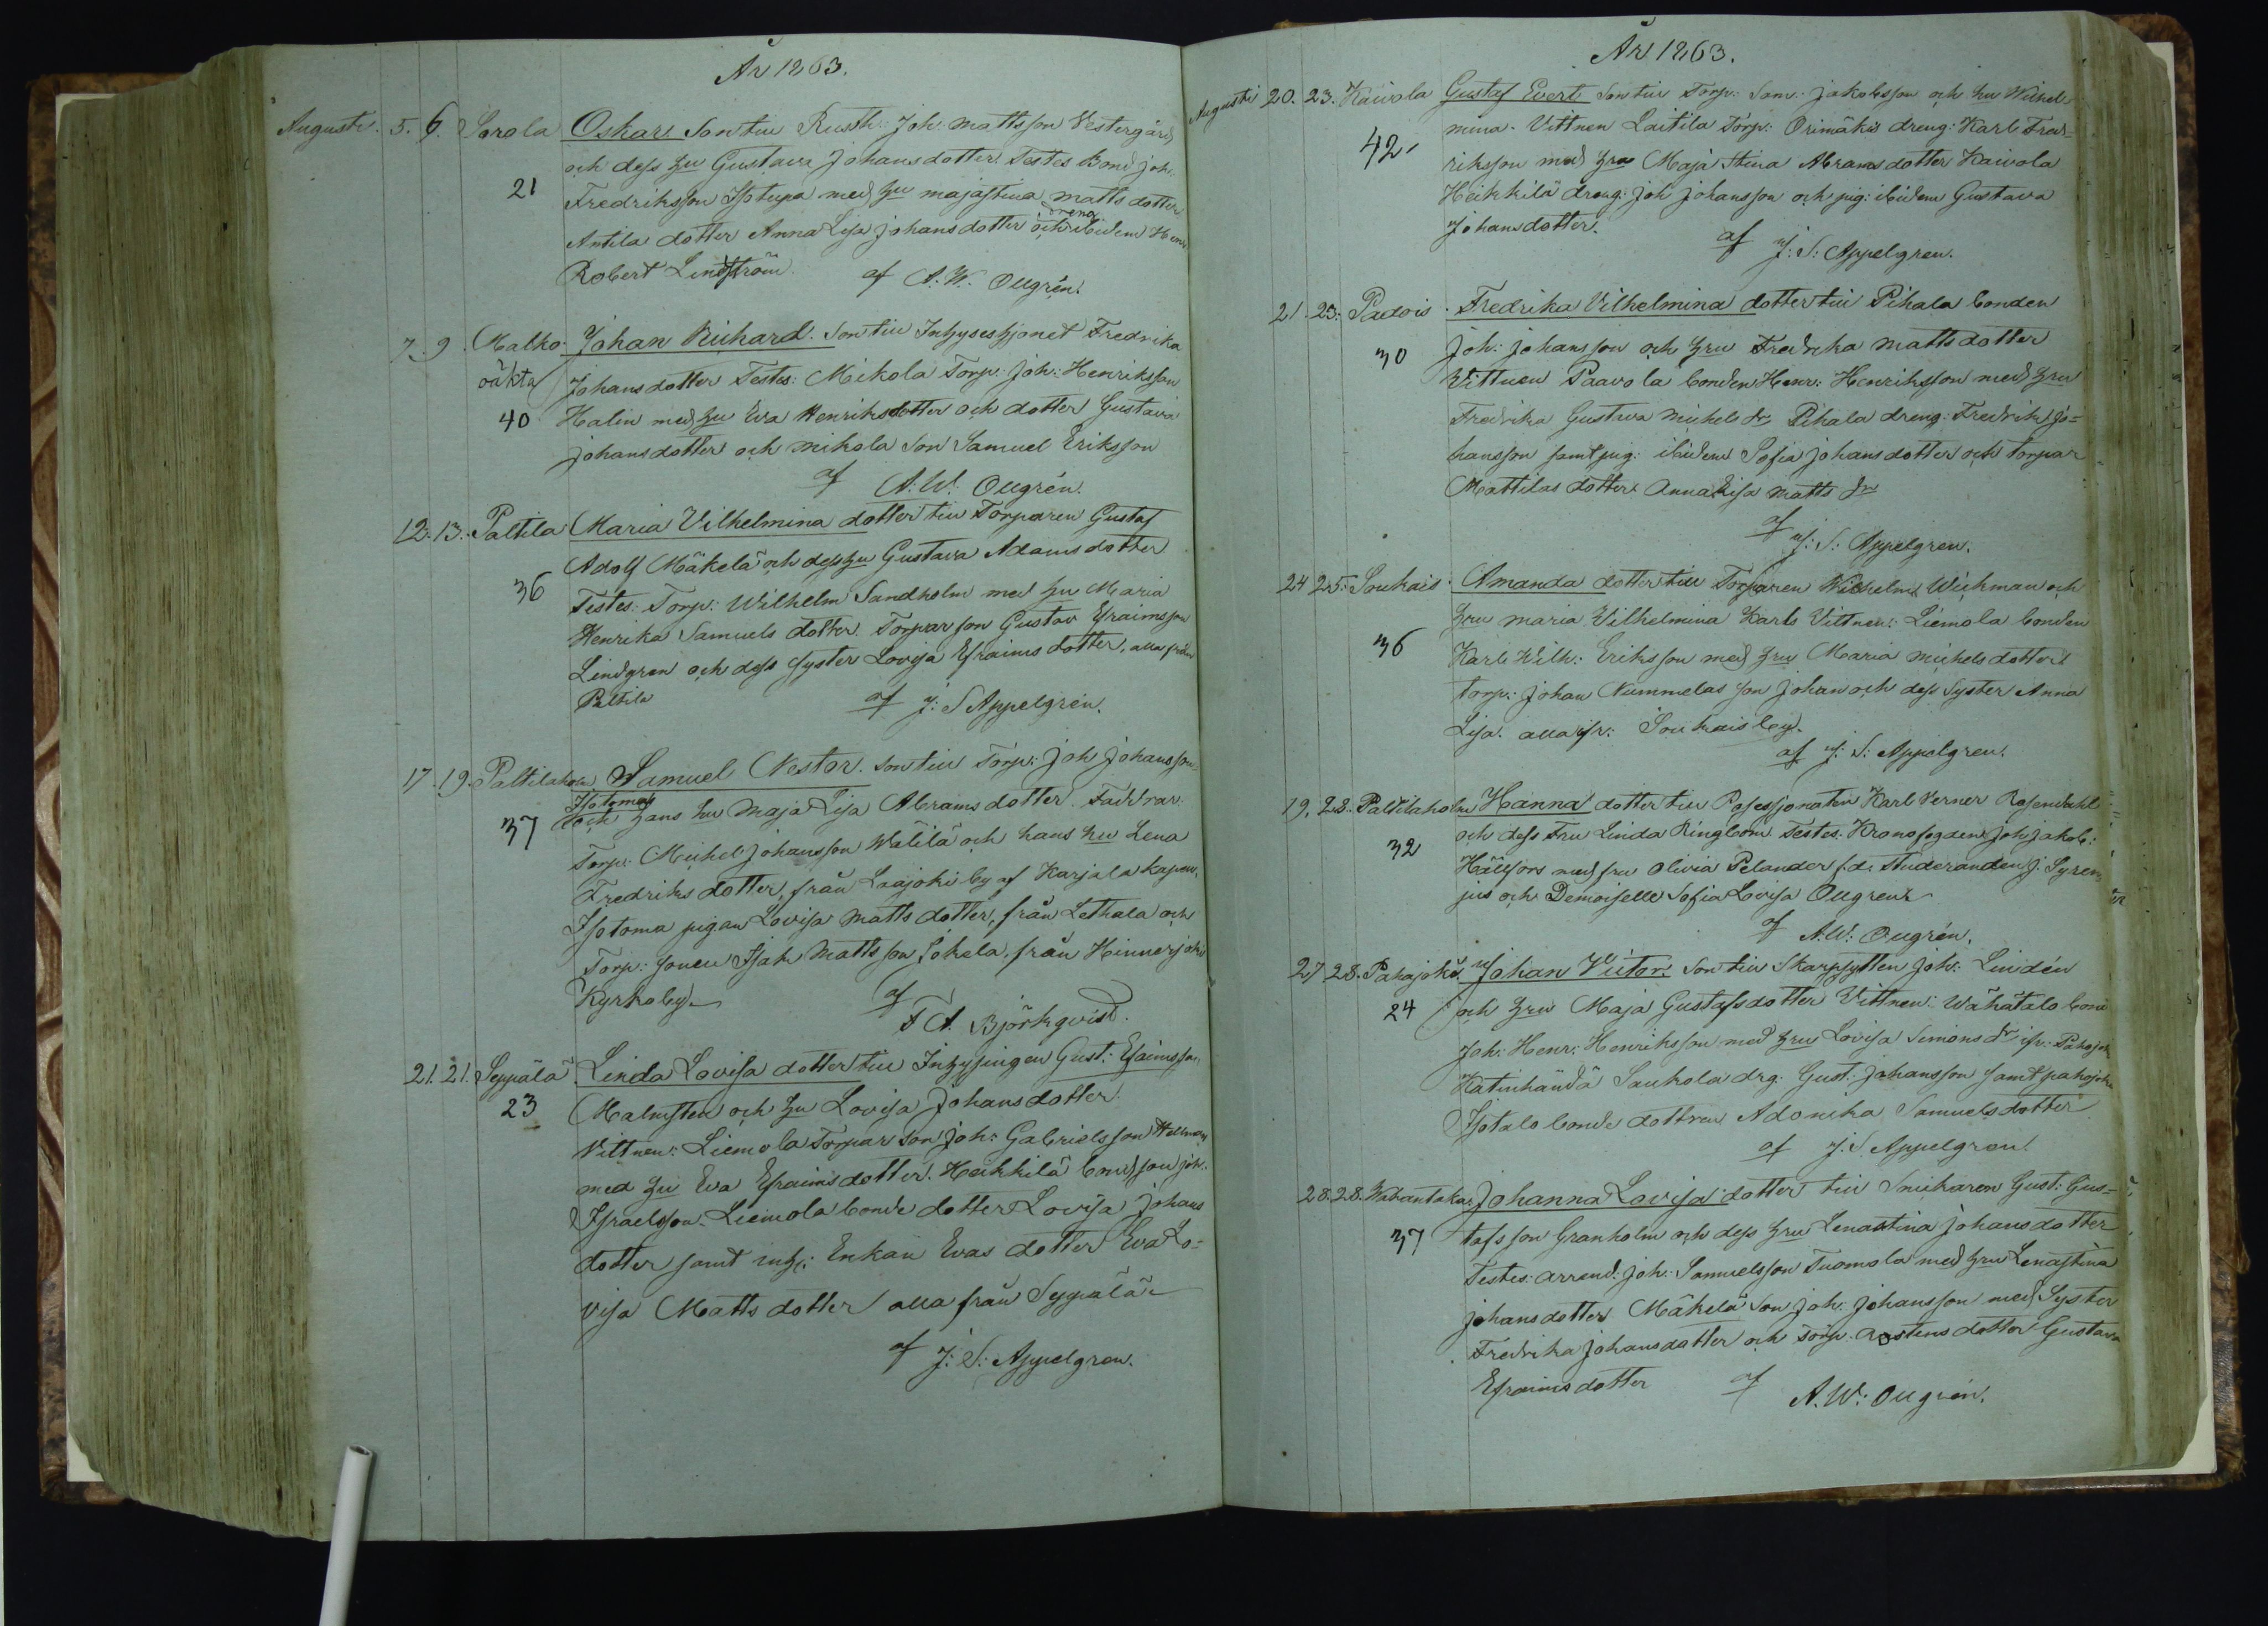 År 1863.
Augusti. 5. 6. Sorola Oskar Son till Rusth: Joh: Mattsson Vestergård
och dess hu Gustava Johansdotter. Testes Bond Joh:
21 Fredriksson Isotupa med hu Majastina Mattsdotter
dreng
Antila dotter Anna Lisa Johansdotter och ibidem Henr
Robert Lindström. af A. W. Ollgrén.
7. 9. Malko Johan Richard. Son till Inhyseshjonet Fredrika
oäkta Johansdotter Testes: Mikola Torp: Joh: Henriksson
40 Halin med hu Eva Henriksdotter och dotter Gustava
Johansdotter och Mikola Son Samuel Eriksson
af A: W: Ollgrén.
12. 13. Paltila Maria Vilhelmina dotter till Torparen Gustaf
Adolf Mäkelä och dess hu Gustava Adamsdotter
36 Testes: Torp: Wilhelm Sandholm med hu Maria
Henrika Samuels dotter. Torpar son Gustav Efraimsson
Lindgren och dess Syster Lovisa Efraims dotter, alla från
Paltila af J: S Appelgrén.
17. 19. Paltilaholm Samuel Nestor. son till Torp: Joh Johansson
Isotoma
37 och hans hu Maja Lisa Abrams dotter. Faddrar:
Torp: Michel Johansson Wälilä och hans hu Lena
Fredriks dotter, från Laajoki by af Karjala kapell,
Isotoma pigan Lovisa Matts dotter, från Lethala och
Torp: sonen Isak Mattsson Jokela, från Hinnerjoki
Kyrkoby. af
F A. Björkqvist.
21. 21. Seppälä Linda Lovisa dotter till Inhysingen Gust: Efaimsson
23 Malmsten och hu Lovisa Johansdotter.
Vittnen: Liemola Torpar son Joh: Gabrielsson Hellman
med hu Eva Efraimsdotter. Heikkilä bondson Joh:
Israelsson. Liemola bonde dotter Lovisa Johans
dotter samt inh: Enkan Evas dotter Eva Lo-
visa Matts dotter alla från Seppälä
af J: S: Appelgren.
År 1863.
Augusti 20. 23. Kaivola Gustaf Evert Son till Torp: Sam: Jakobsson och hu Wilhel-
42 mina. Vittnen Laitila Torp: Orimäkis dreng: Karl Fred-
riksson med hru Maja Stina Abramsdotter Kaivola
Heikkilä dreng: Joh Johansson och pig: ibidem Gustava
Johansdotter. af J: S: Appelgren.
21. 23. Padois Fredrika Vilhelmina dotter till Pihala bonden
30 Joh: Johansson och hru Fredrika Mattsdotter
Vittnen Paavola bonden Henr: Henriksson med hru
Fredrika Gustava Michels dr, Pihala dreng: Fredrik Jo=
hansson samt pig: ibidem Sofia Johansdotter och torpar
Mattilas dotter Anna Lisa Matts dr
af J: S: Appelgren.
24 25. Soukais Amanda dotter till Torparen Wilhelm Wichman och
hru Maria Vilhelmina Karls Vittnen: Liemola bonden
36 Karl Wilh: Eriksson med hru Maria Michelsdotter
torp: Johan Nummelas son Johan och dess Syster Anna
Lisa. alla ifr: Soukais by.
af J: S: Appelgren.
19. 28. Paltilaholm Hanna dotter till Possessionaten Karl Verner Rosendahl
32 och dess Fru Linda Ringbom. Testes. Kronofogden Joh: Jakob:
Hällfors med fru Olivia Pelander f.d. Studeranden J: Syren
jus och Demoiselle Sofia Lovisa Ollgren
af A. W: Ollgrén.
27 28. Pahajoki Johan Victor. Son till Skarpsytten Joh: Lindén
24 och hru Maja Gustafsdotter Vittnen: Wähätalo bond
Joh: Henr: Henriksson med hru Lovisa Simons dr ifr: Pahajok
Katinhändä Saukola drg: Gust: Johansson samt pahajoki
Isotalo bonde dottren Adonika Samuelsdotter
af J. S Appelgren.
28. 28. Johanna Lovisa dotter till Snickaren Gust: Gus-
37 tafsson Granholm och dess hru Lenastina Johansdotter
Testes: arrend: Joh: Samuelsson Tuomola med hru Lenastina
Johansdotter Mäkelä Son Joh: Johansson med Syster
Fredrika Johansdotter och Torp. dotter Gustava
Efraimsdotter af A. W: Ollgrén.